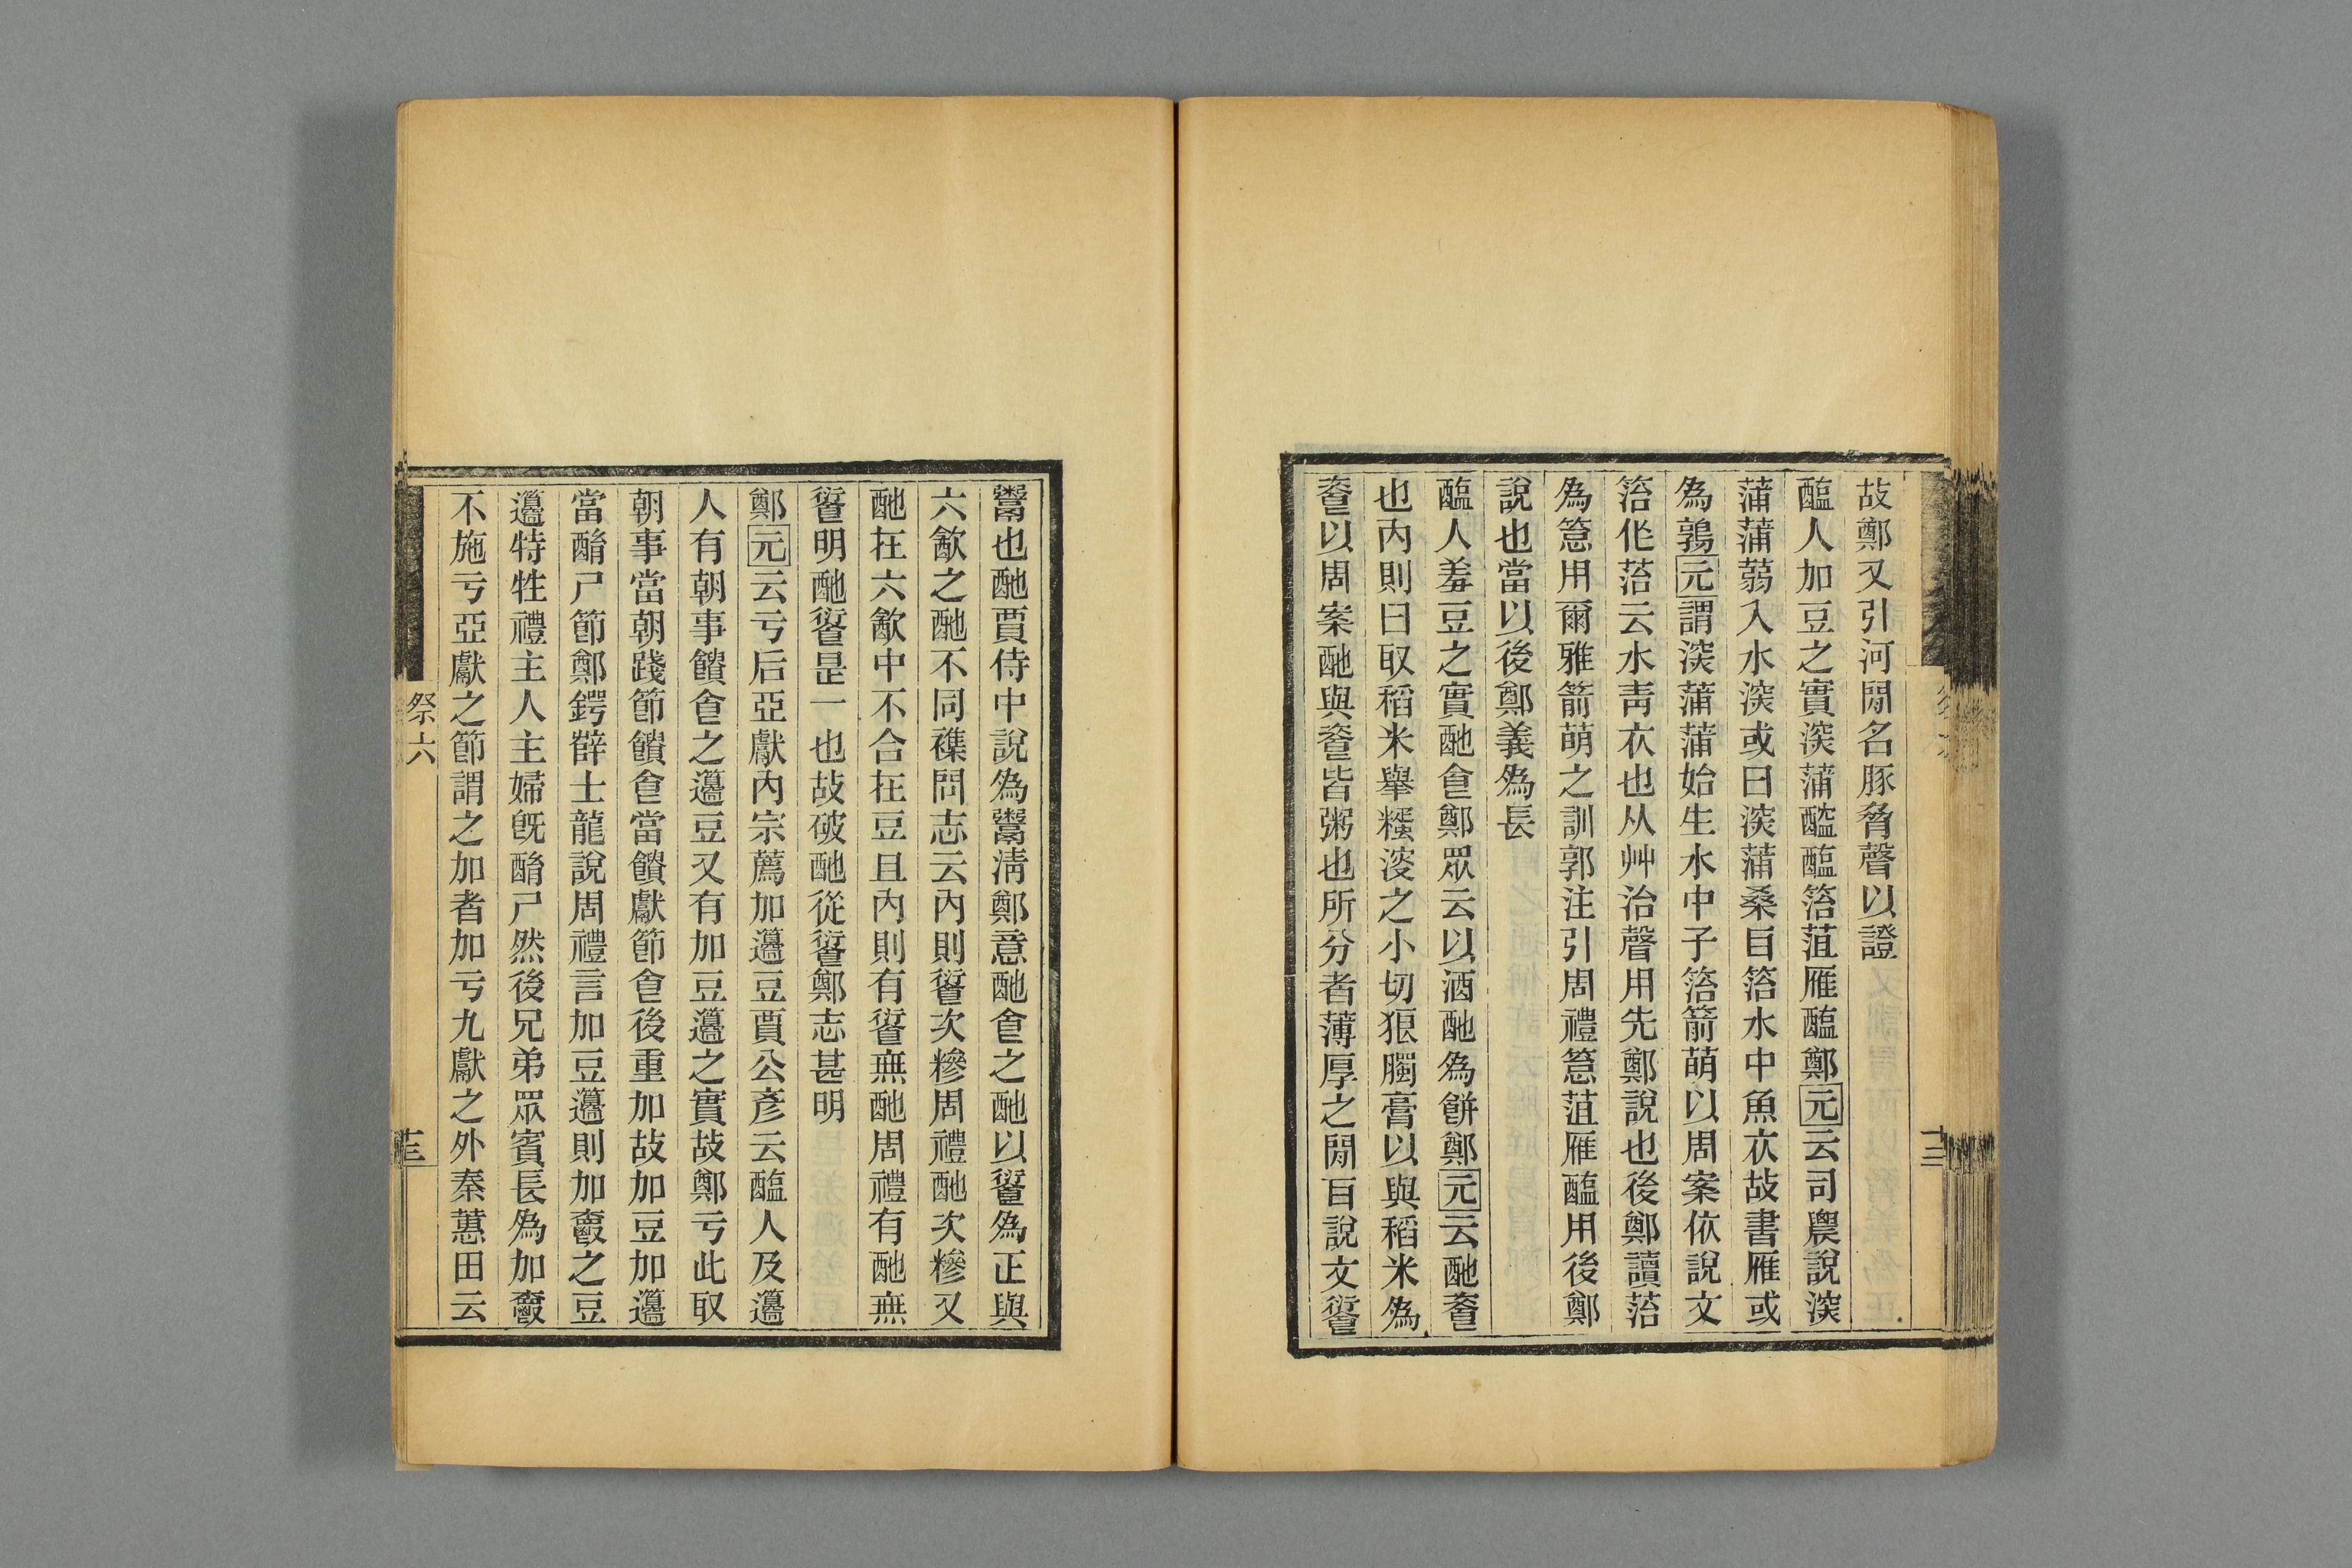 故鄭又引河閒名豚脅聲以證
醢人加豆之實深蒲醓醢箈菹雁醢鄭元云司農說深
蒲蒲蒻入水深或曰深蒲桑耳箈水中魚衣故書雁或
為鶉元謂深蒲蒲始生水中子箈箭萌以周案依說文
箈作菭云水青衣也从艸治聲用先鄭說也後鄭讀菭
為篒用爾雅箭萌之訓郭注引周禮篒菹雁醢用後鄭
說也當以後鄭義為長
醢人羞豆之實酏食鄭眾云以酒酏為餅鄭元云酏餈
也內則曰取稻米舉糔溲之小切狼臅膏以與稻米為
餈以周案酏與餈皆粥也所分者薄厚之閒耳說文䭈
鬻也酏賈侍中說為鬻清鄭意酏食之酏以䭈為正與
六飲之酏不同襍問志云內則䭈次糝周禮酏次糝又
酏在六飲中不合在豆且內則有䭈無酏周禮有酏無
䭈明酏䭈是一也故破酏從䭈鄭志甚明
鄭元云亏后亞獻內宗薦加籩豆賈公彥云醢人及籩
人有朝事饋食之籩豆又有加豆籩之實故鄭亏此取
朝事當朝踐節饋食當饋獻節食後重加故加豆加籩
當酳尸節鄭鍔薛士龍說周禮言加豆籩則加爵之豆
籩特牲禮主人主婦旣酳尸然後兄弟眾賓長為加爵
不施亏亞獻之節謂之加者加亏九獻之外秦蕙田云
祭六
十三
十二